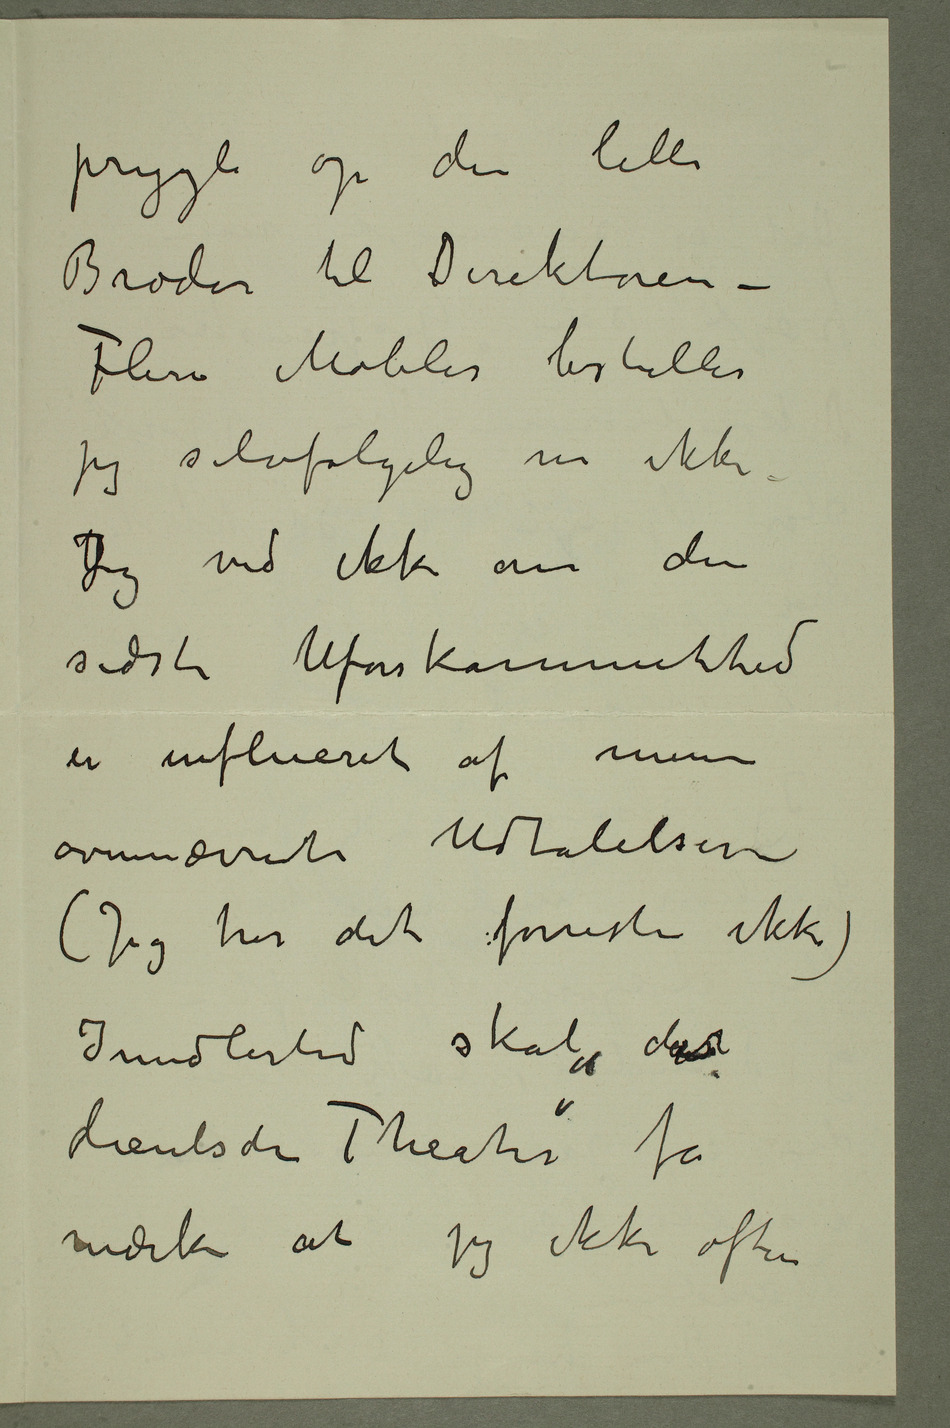 prygle op den lille
Broder til Direktøren –
Flere Møbler bestiller
jeg selvfølgelig nu ikke –
Jeg ved ikke om den
sidste Uforskammethed
er influeret af mine
ovennævnte Udtalelser –
(Jeg tror det forresten ikke)
Imidlertid skal „das
deutsche Theater“ få
mærke at jeg ikke often